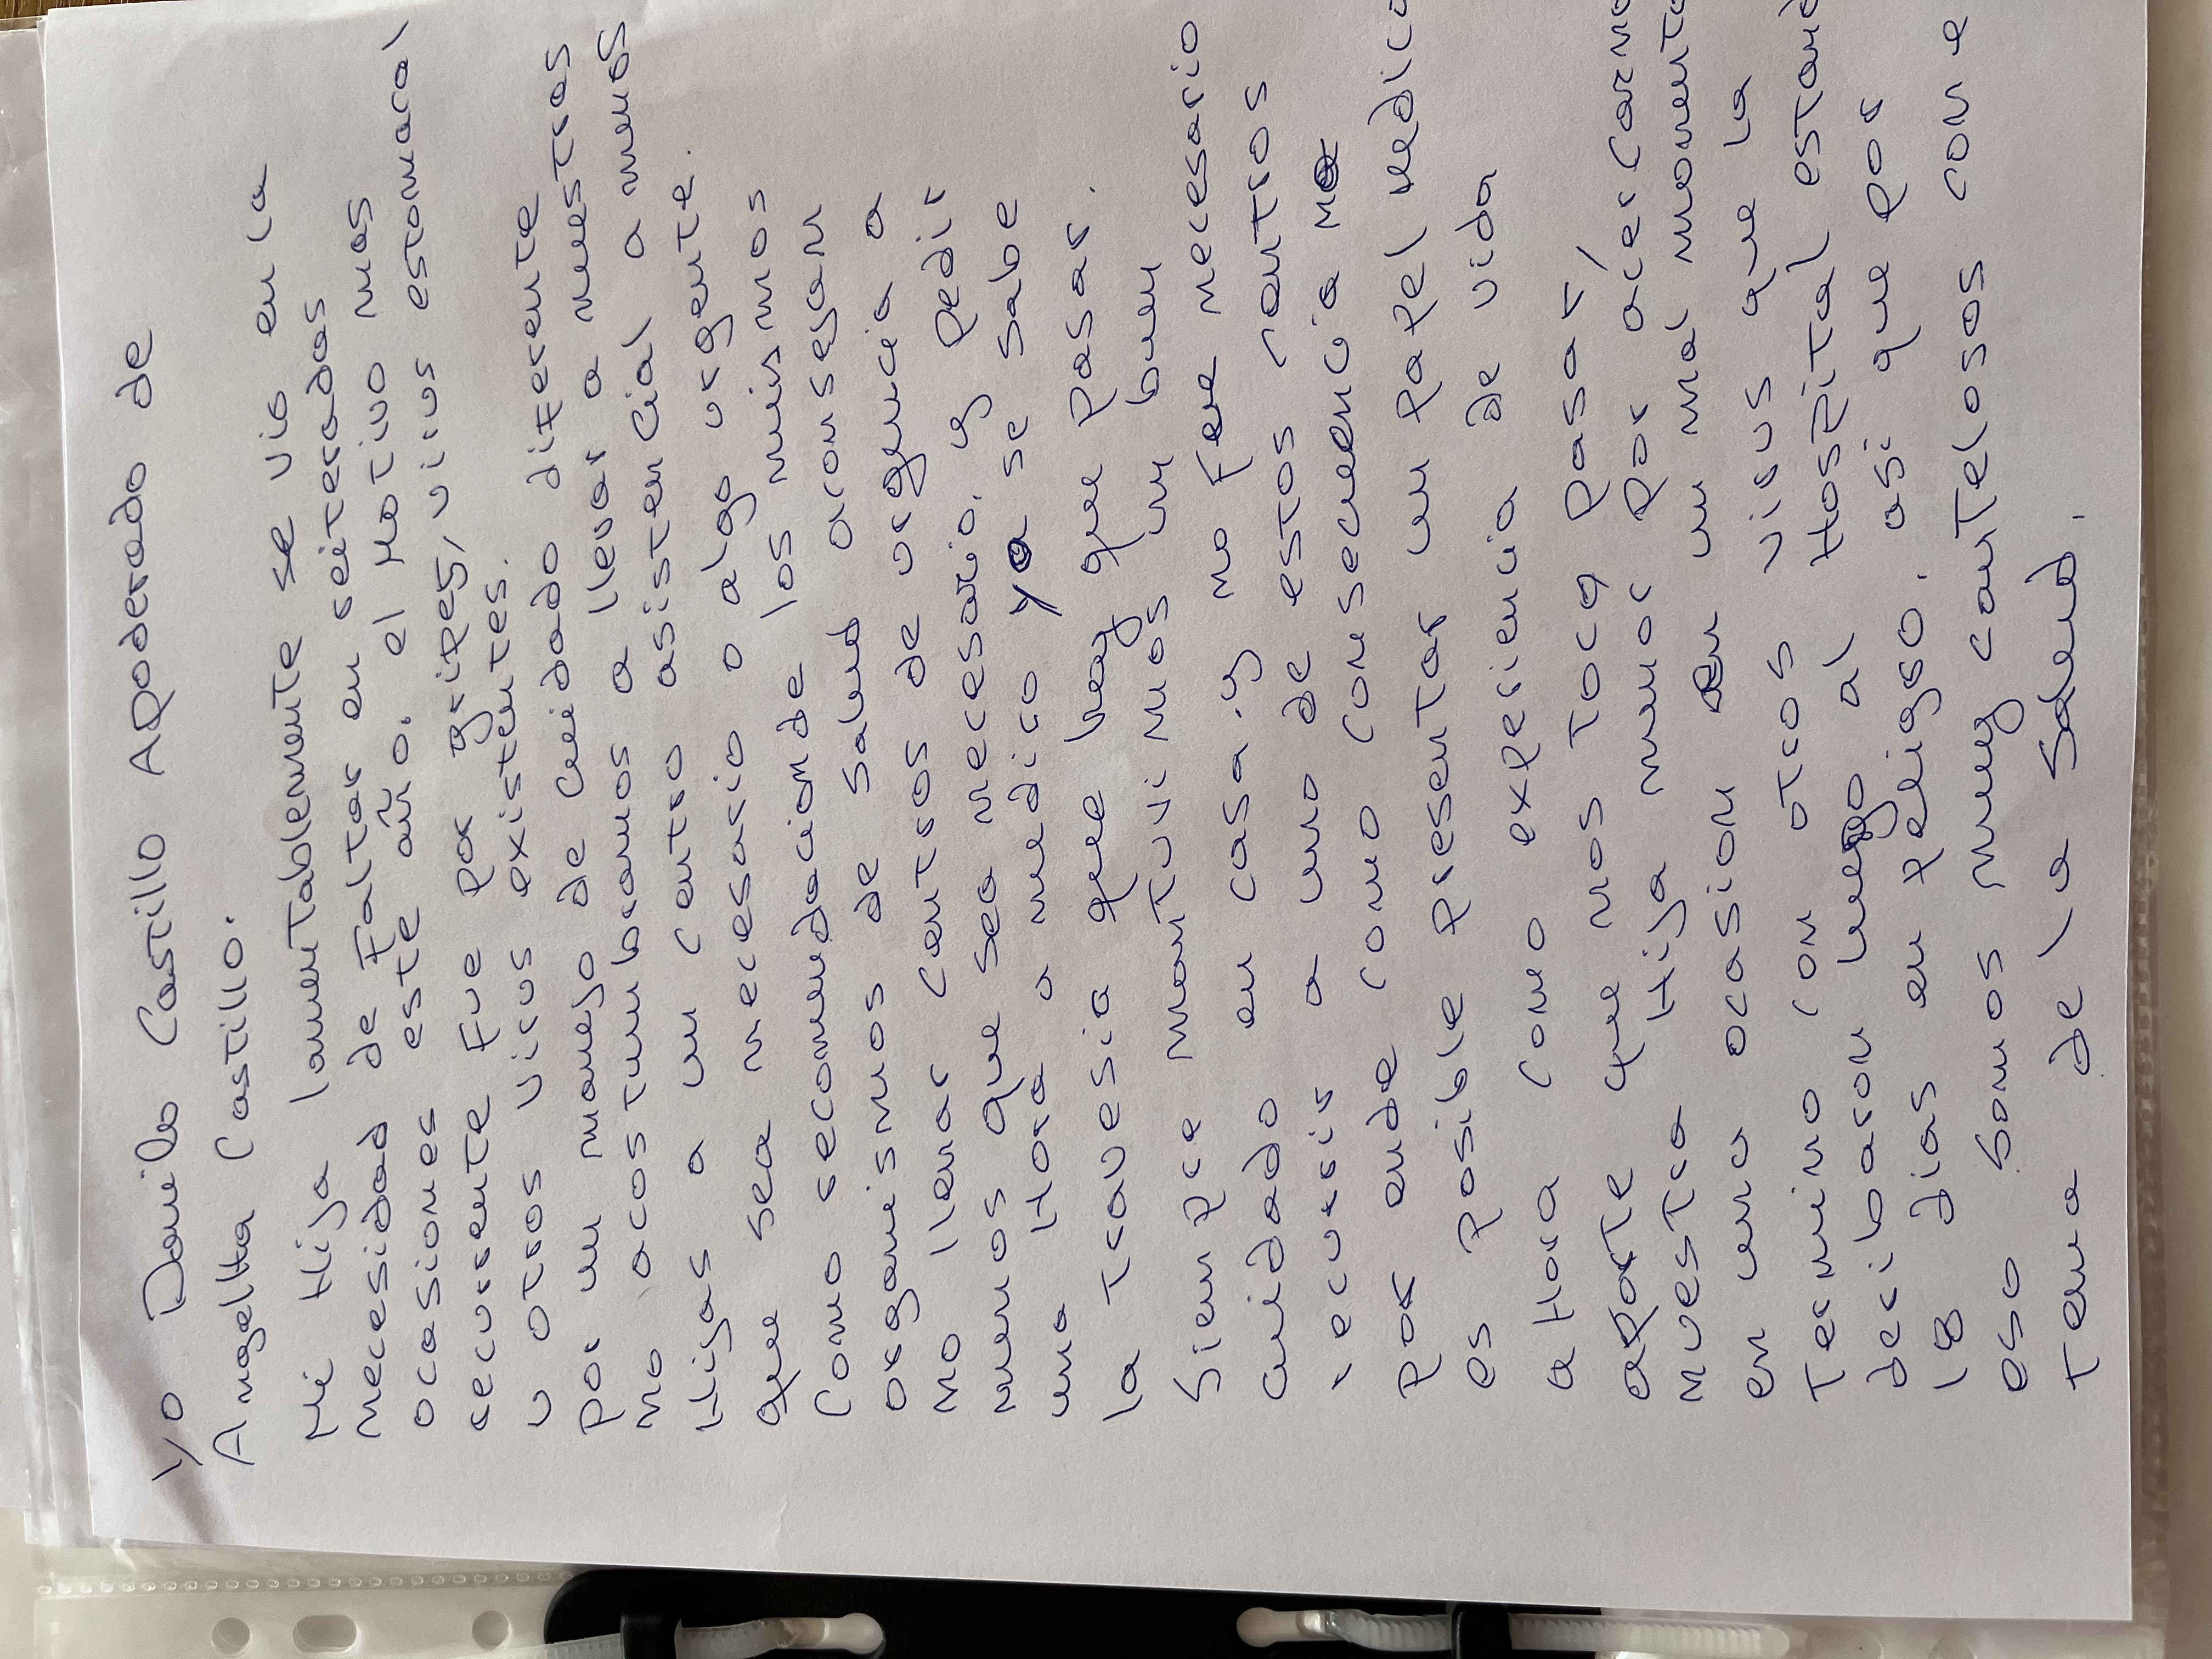 Yo Danilo Castillo Apoderado de
Angella Castillo.
Mi Hija lamentablemente se vio en la
necesidad de Faltar en reiteradas
ocasiones este año. el Motivo mas
recurrente Fue por gripes, virus estomacal
u otros virus existentes.
por un manejo de cuidado diferente
no acostumbramos a llevar a nuestras
Hijas a un centro asistencial a menos
que sea necesario o algo urgente.
Como recomendacion de los mismos
organismos de salud aconsejan
no llenar centros de urgencia a
menos que sea necesario. y pedir
una Hora a medico ya se sabe
la travesia que hay que pasar.
Siempre mantuvimos un buen
cuidado en casa. y no fue necesario
recurrir a uno de estos centros
por ende como consecuencia no
es posible presentar un papel medico
ahora como experiencia de vida
aporte que nos toco pasar
nuestra Hija menor por acercarno
en una ocasion en un mal momento
Termino con otros virus que la
derivaron luego al Hospital estand
18 dias en peligro. asi que por
eso somos muy cautelosos con e
tema de la salud.